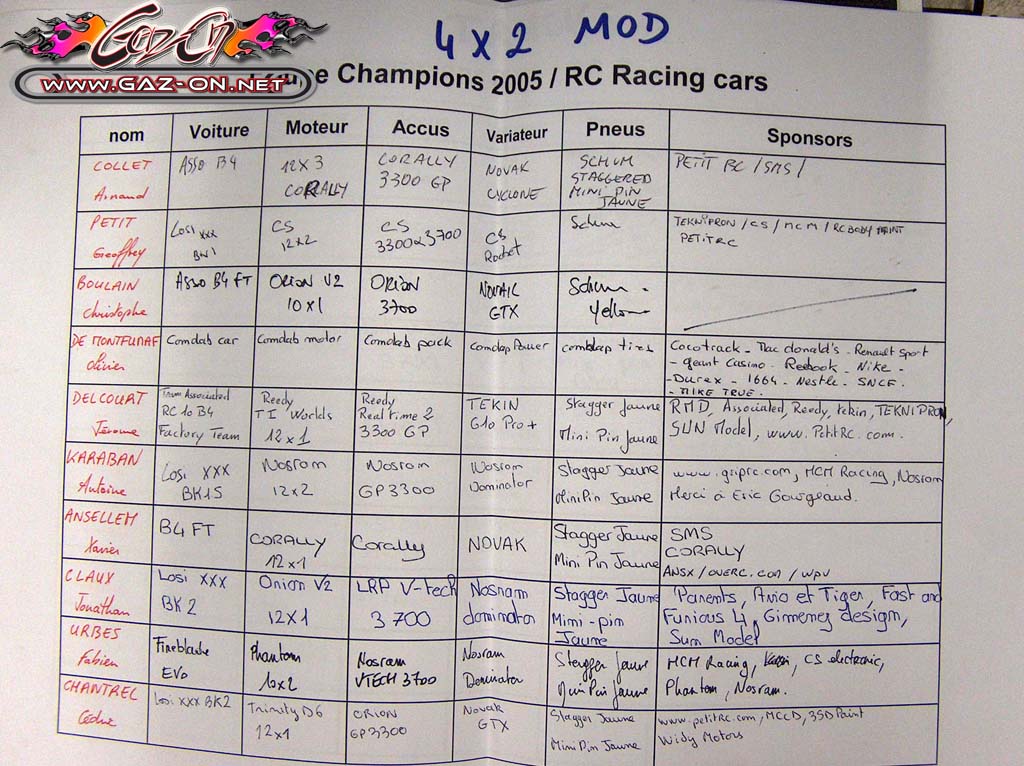 Gaz-On
www.GAZ-ON.NET
4 X 2 MOD
Champions 2005 / RC Racing cars
nom Voiture Moteur Accus Variateur Pneus Sponsors
COLLET Asso B4 12X3 CORALLY NOVAK SCHUM PETIT RC / SMS /
Arnaud CORALLY 3300 GP CYCLONE STAGGERED
MINI PIN
JAUNE
PETIT Losi XXX CS CS CS Schum TEKNIPRON / CS / MCM / RC BODY PAINT
Geoffrey BK1 12x2 3300 3700 Rocket PETITRC
BOULAIN Asso B4 FT ORION V2 ORION NOVAK Schum -
Christophe 10x1 3700 GTX Yellow
DE MONTFUNAF Comdab car Comdab motor Comdab pack Comdap Power comdap tires Cocotrack - Mac donald's - Renault Sport
Olivier - geant Casino - Reebook - Nike -
- Durex - 1664 - Nestle - SNCF -
- NIKE TRUE -
DELCOURT Team Associated Reedy Reedy TEKIN Stagger Jaune RMD, Associated, Reedy, tekin, TEKNIPRON,
Jerome RC 10 B4 TI Worlds Real time 2 G10 Pro + Mini Pin Jaune SUN Model, www.PetitRC.com.
Factory Team 12x1 3300 GP
KARABAN Losi XXX Nosram Nosram Nosram Stagger Jaune www.griprc.com, MCM Racing, Nosram
Antoine BK1S 12x2 GP3300 Dominator Mini Pin Jaune Merci à Eric Gourgeaud.
ANSELLEM B4 FT CORALLY Corally NOVAK Stagger Jaune SMS
Xavier 12x1 Mini Pin Jaune CORALLY
ANSX / OVERC.COM / WPV
CLAUX Losi XXX Orion V2 LRP V-tech Nosram Stagger Jaune Parents, Avio et Tiger, Fast and
Jonathan BK2 12X1 3700 dominator Mini-pin Furious 4, Gimmenez design,
Jaune Sun Model
URBES Fireblade Phantom Nosram Nosram Stagger Jaune MCM Racing, CS electronic,
Fabien EVO 10x2 VTECH 3700 Dominator Mini Pin Jaune Phantom, Nosram.
CHANTREL Losi XXX BK2 Trinity D6 ORION Novak Stagger Jaune www.petitRC.com, MCCD, 3SD Paint
Cédric 12x1 GP3300 GTX Mini Pin Jaune Widy Motors